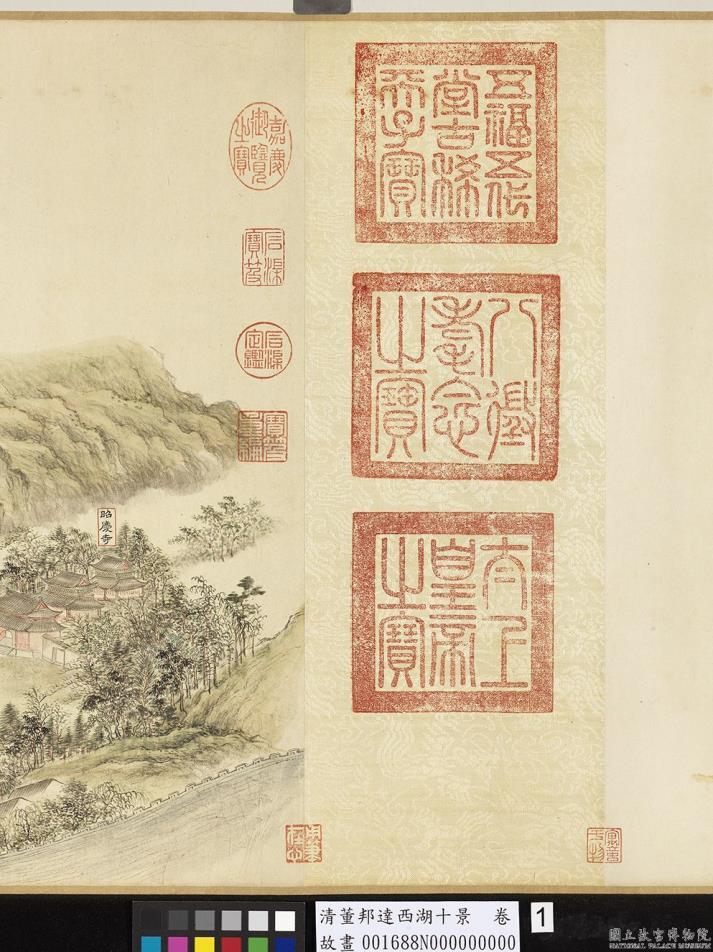 五福五代
堂古稀
天子寶
八徵
耄念
之寶
太上
皇帝
之寶
嘉慶
御覽
之寶
石渠
寶笈
石渠
定鑑
寶笈
重編
昭慶寺
清董邦達西湖十景 卷
故畫 001688N000000000
1
國立故宮博物院
NATIONAL PALACE MUSEUM